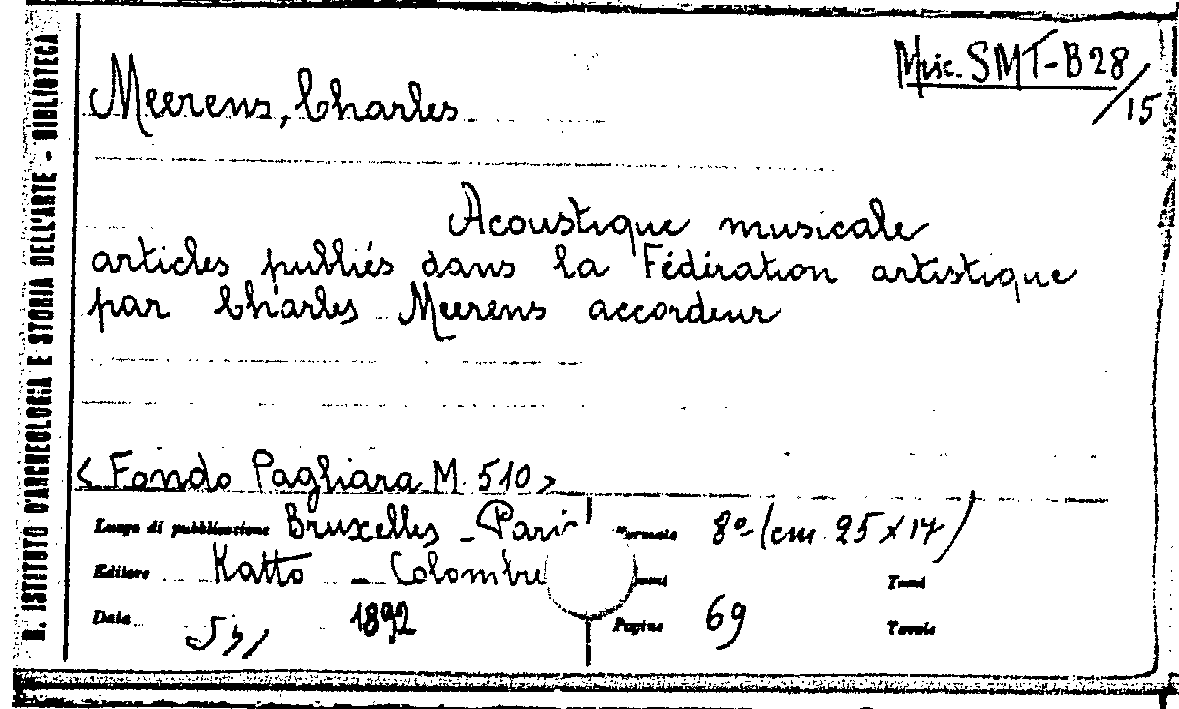 Misc. SMT-B28/15
Meerens, Charles
Acoustique musicale
articles publiés dans la Fédération artistique
par Charles Meerens accordeur
< Fondo Pagliara M. 510 >
Luogo di pubblicazione Bruxelles - Paris Formato 8º (cm 25 x 17)
Editore Katto - Colombier Tomi
Data 1892 Pagine 69 Tavole
R. ISTITUTO D'ARCHEOLOGIA E STORIA DELL'ARTE - BIBLIOTECA